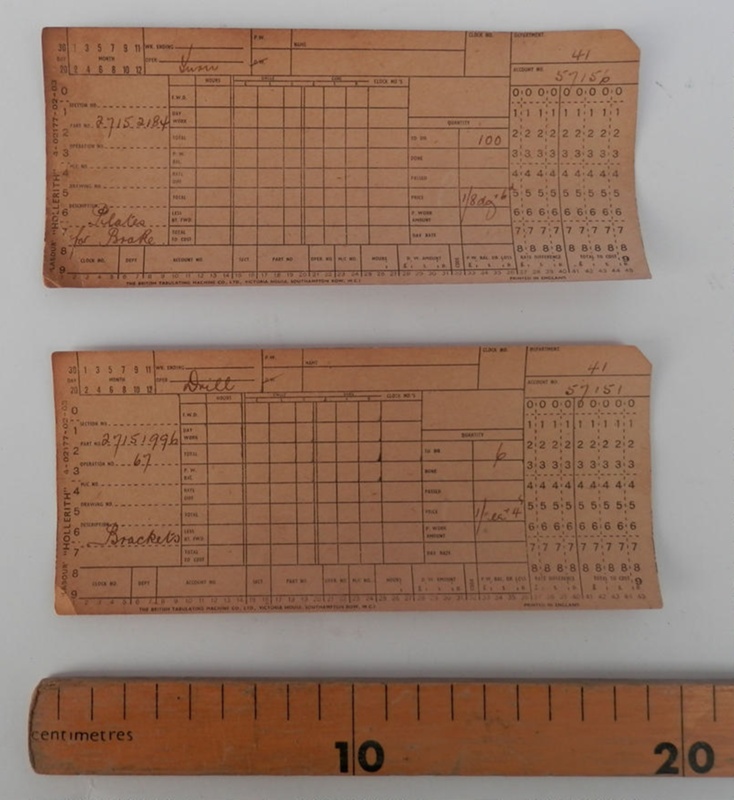 30 1 3 5 7 9 11
DAY MONTH
20 2 4 6 8 10 12
WK. ENDING
OPER.
P.W.
NAME
CLOCK NO.
DEPARTMENT.
41
ACCOUNT NO.
57156
HOURS
CLOCK NO'S
SECTION NO.
PART NO. 2715.2184
OPERATION NO.
M/C NO.
DRAWING NO.
DESCRIPTION
Plates
for Brake
E.M.D.
DAY WORK
TOTAL
P.W. BAL.
RATE DIFF.
TOTAL
LESS AT FWD
TOTAL TO COST
QUANTITY
TO DO 100
DONE
PASSED
PRICE
P. WORK AMOUNT
DAY RATE
0 0 0 0 0 0 0
1 1 1 1 1 1 1
2 2 2 2 2 2 2
3 3 3 3 3 3 3
4 4 4 4 4 4 4
5 5 5 5 5 5 5
6 6 6 6 6 6 6
7 7 7 7 7 7 7
8 8 8 8 8 8 8
CLOCK NO. DEPT. ACCOUNT NO. SECT. PART NO. OPER NO. M/C NO. HOURS P. W. AMOUNT P.W. BAL. OR LESS RATE DIFFERENCE TOTAL TO COST
THE BRITISH TABULATING MACHINE CO., LTD., VICTORIA HOUSE, SOUTHAMPTON ROW, W.C.1.
PRINTED IN ENGLAND.
LABOUR "HOLLERITH" 4-02177-02-03
30 1 3 5 7 9 11
DAY MONTH
20 2 4 6 8 10 12
WK. ENDING
OPER. Drill
P.W.
NAME
CLOCK NO.
DEPARTMENT.
41
ACCOUNT NO.
57151
HOURS
CLOCK NO'S
SECTION NO.
PART NO. 2715.1996
OPERATION NO. 67
M/C NO.
DRAWING NO.
DESCRIPTION
Brackets
E.M.D.
DAY WORK
TOTAL
P.W. BAL.
RATE DIFF.
TOTAL
LESS AT FWD
TOTAL TO COST
QUANTITY
TO DO 6
DONE
PASSED
PRICE
P. WORK AMOUNT
DAY RATE
0 0 0 0 0 0 0
1 1 1 1 1 1 1
2 2 2 2 2 2 2
3 3 3 3 3 3 3
4 4 4 4 4 4 4
5 5 5 5 5 5 5
6 6 6 6 6 6 6
7 7 7 7 7 7 7
8 8 8 8 8 8 8
CLOCK NO. DEPT. ACCOUNT NO. SECT. PART NO. OPER NO. M/C NO. HOURS P. W. AMOUNT P.W. BAL. OR LESS RATE DIFFERENCE TOTAL TO COST
THE BRITISH TABULATING MACHINE CO., LTD., VICTORIA HOUSE, SOUTHAMPTON ROW, W.C.1.
PRINTED IN ENGLAND.
LABOUR "HOLLERITH" 4-02177-02-03
centimetres
10 20